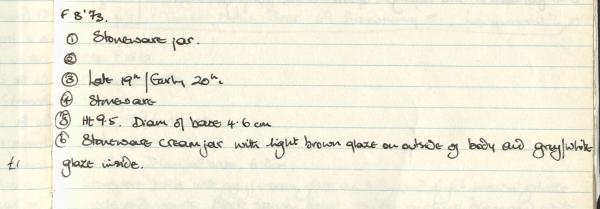 F 8'73.
① Stoneware jar.
②
③ Late 19th/Early 20th.
④ Stoneware
⑤ Ht 9.5. Diam of base 4.6 cm
⑥ Stoneware cream jar with light brown glaze on outside of body and grey/white
£1 glaze inside.